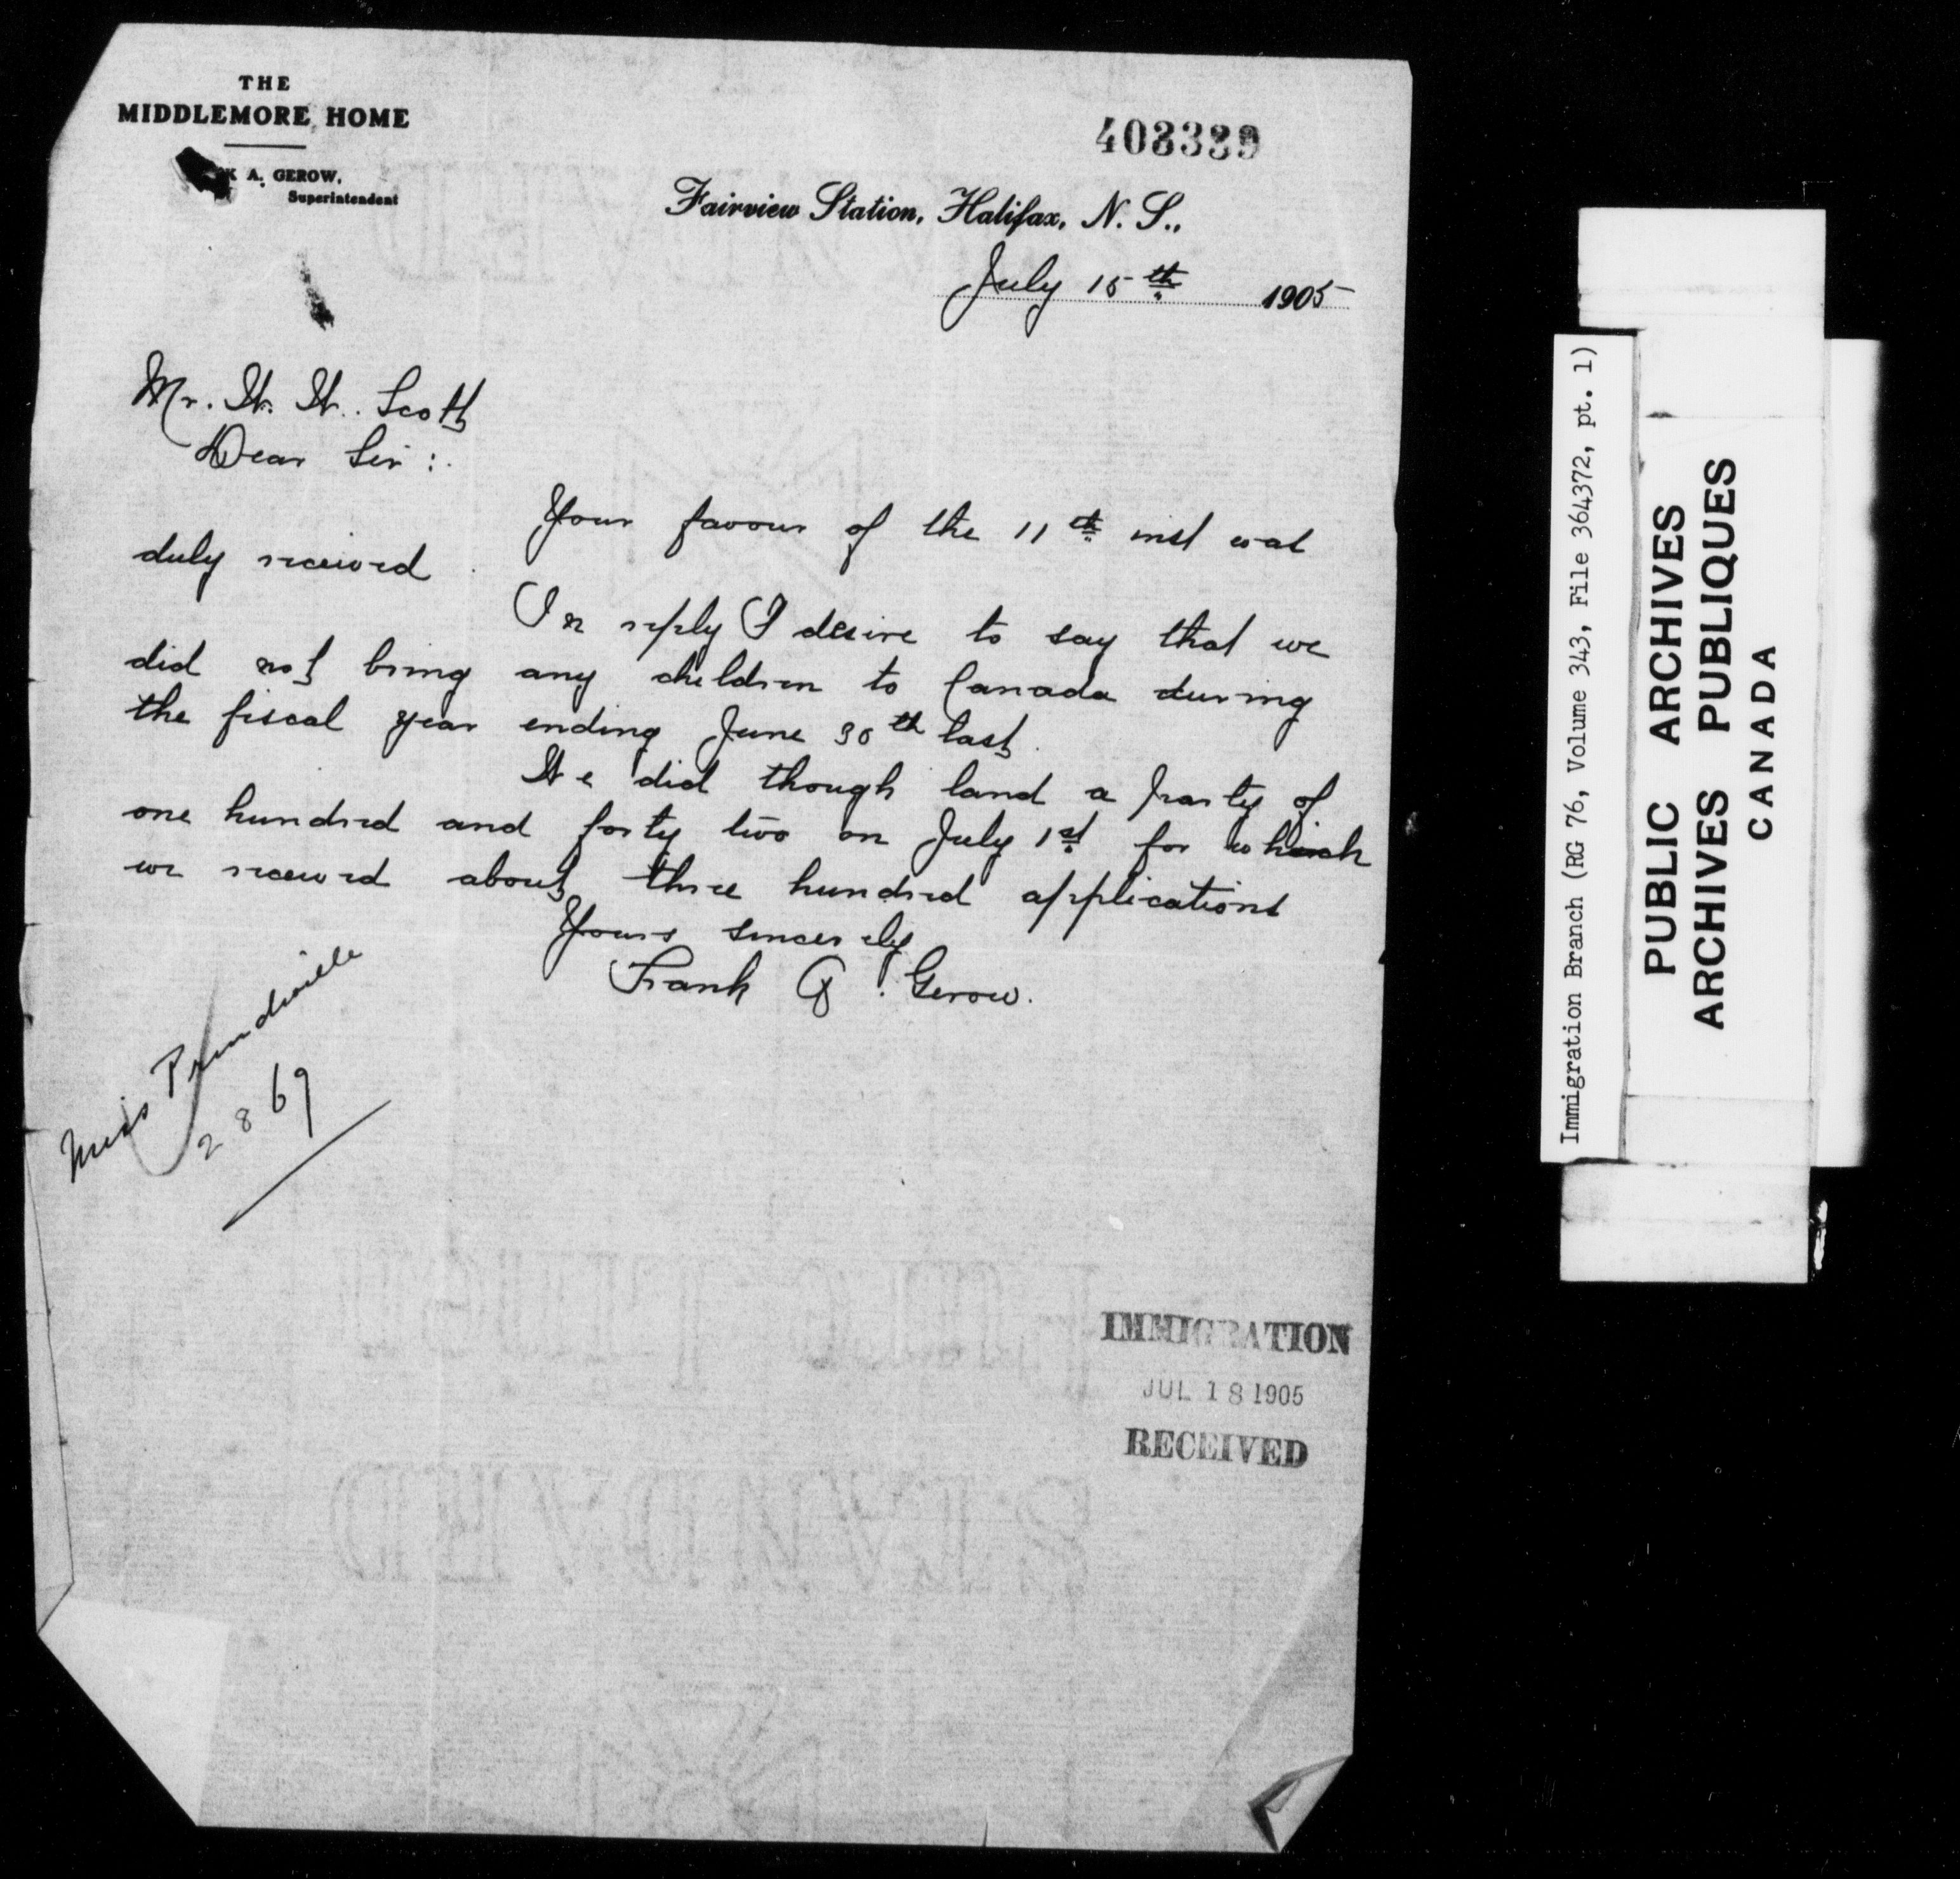 THE
MIDDLEMORE HOME
K A. GEROW,
Superintendent
408339
Fairview Station, Halifax, N. S.,
July 15th 1905
Mr. W. W. Scott
Dear Sir :
Your favour of the 11th inst was
duly received.
In reply I desire to say that we
did not bring any children to Canada during
the fiscal year ending June 30th last.
We did though land a party of
one hundred and forty two on July 1st for which
we received about three hundred applications
Yours sincerely
Frank A. Gerow.
Miss
2869
IMMIGRATION
JUL 18 1905
RECEIVED
STANDARD
Immigration Branch (RG 76, Volume 343, File 364372, pt. 1)
PUBLIC ARCHIVES
ARCHIVES PUBLIQUES
CANADA